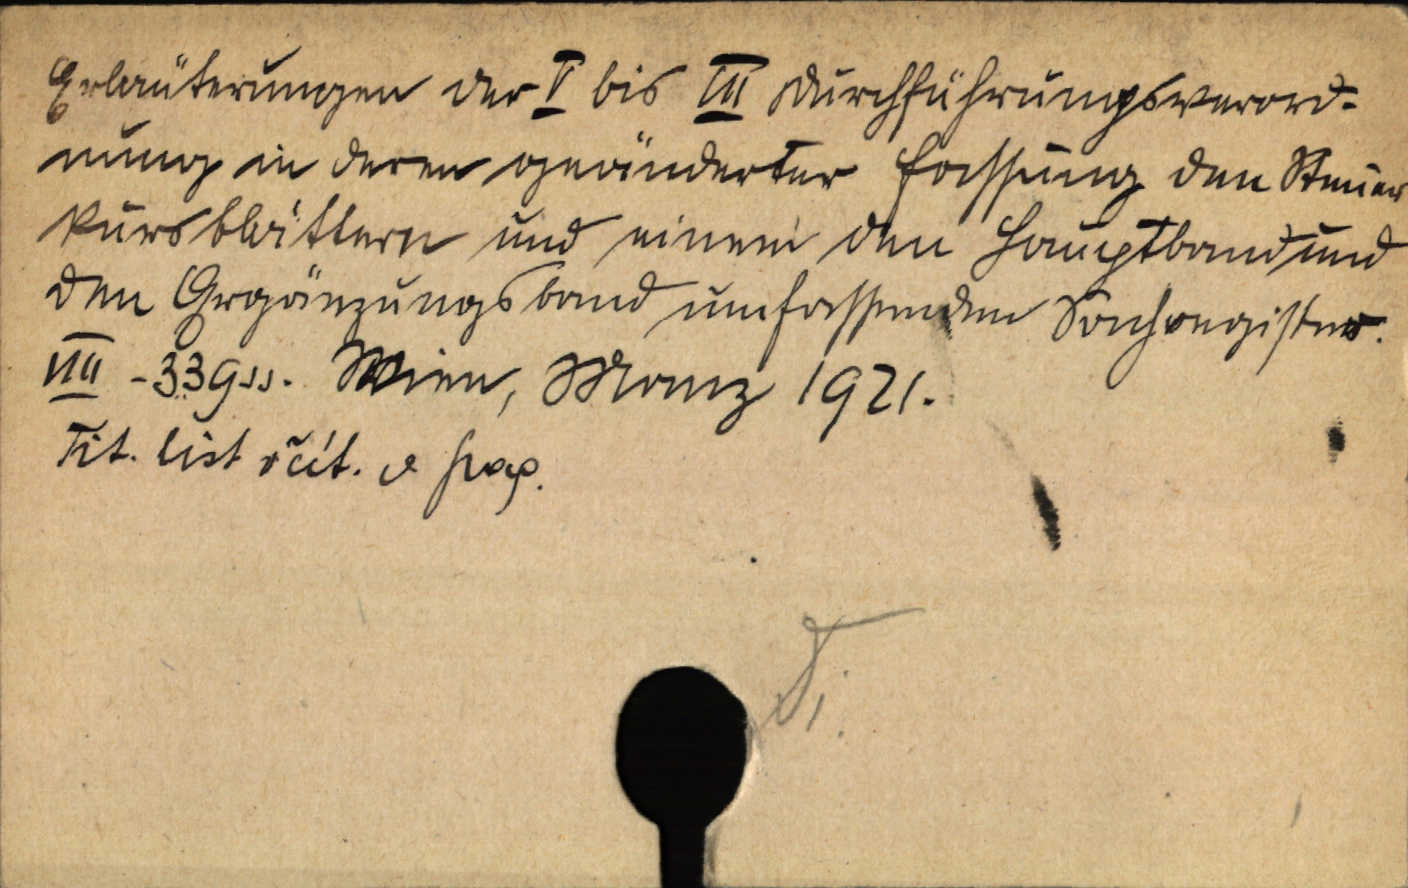 Erläuterungen der V bis VII Durchführungsverord-
nung in deren geänderter Fassung den Steuer
kursblättern und einem den Hauptband und
den Ergänzungsband umfassenden Sachregister.
VIII - 339 ss. Wien, Manz 1921.
Tit. list čít. v pag.